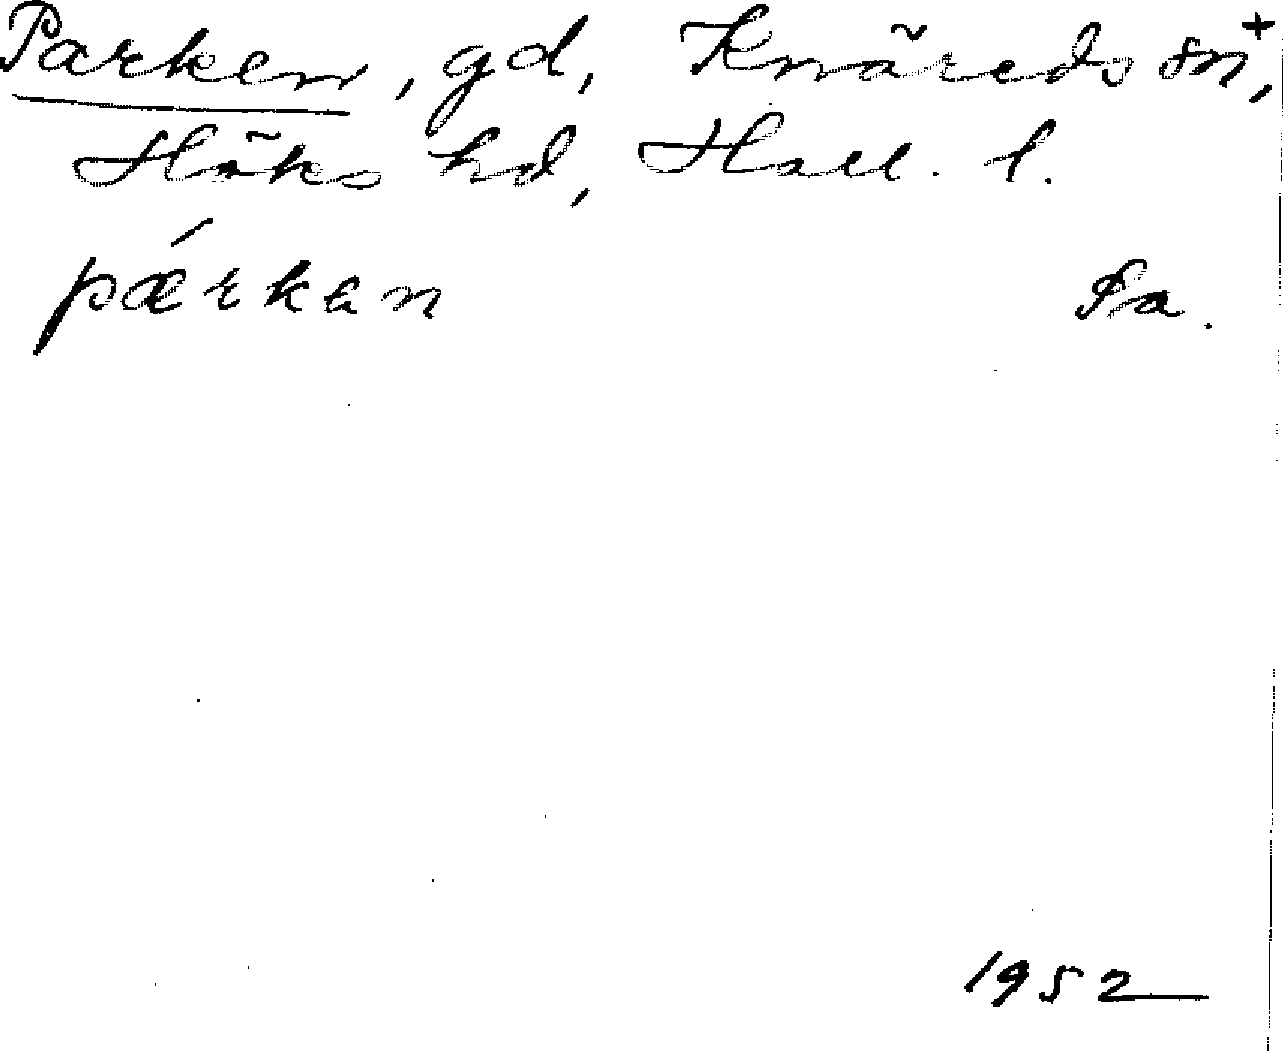 Parken, gd, Knäreds sn⁺,
Höks hd, Hall. l.
pǽrkan
Pa.
1952